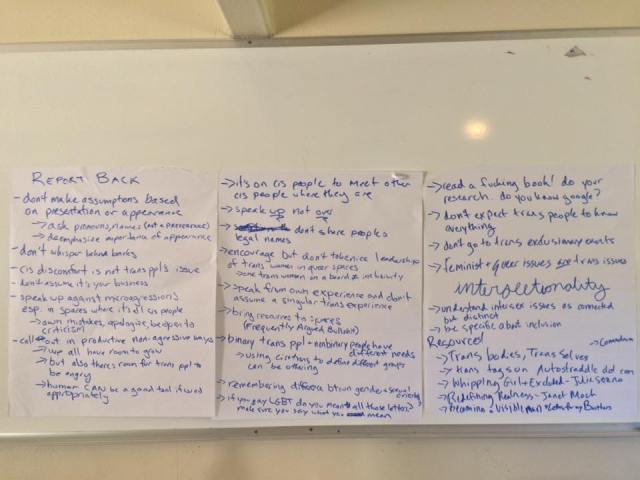 REPORT BACK
- don't make assumptions based
on presentation or appearance
→ ask pronouns, names (not a preference)
→ deemphasize importance of appearance
- don't whisper behind backs
- cis discomfort is not trans ppl's issue
- don't assume it's your business
- speak up against microaggressions
esp. in spaces where it's all cis people
→ own mistakes, apologize, be open to
criticism
- call out in productive non-aggressive ways
↳ we all have room to grow
↳ but also there's room for trans ppl to
be angry
↳ humor CAN be a good tool if used
appropriately
→ it's on cis people to meet other
cis people where they are
→ speak up not over
→ don't share people's
legal names
→ encourage but don't tokenize leadership
of trans women in queer spaces
some trans women on a board ≠ inclusivity
→ speak from own experience and don't
assume a singular trans experience
→ bring resources to spaces
(Frequently Argued Bullshit)
→ binary trans ppl + nonbinary people have
different needs
↳ using to define different groups
can be offering
→ remembering difference btwn gender + sexual
orientation
→ if you say LGBT do you mean all those letters?
make sure you say what you mean
→ read a fucking book! do your
research. do you know google?
→ don't expect trans people to know
everything
→ don't go to trans exclusionary events
→ feminist + queer issues are trans issues
intersectionality
→ understand intersex issues as connected
but distinct
→ be specific about inclusion
Resources!
→ Trans bodies, Trans selves
→ trans tags on Autostraddle dot com
→ Whipping Girl + Excluded - Julia Serano
→ Redefining Realness - Janet Mock
→ Becoming a Visible Man